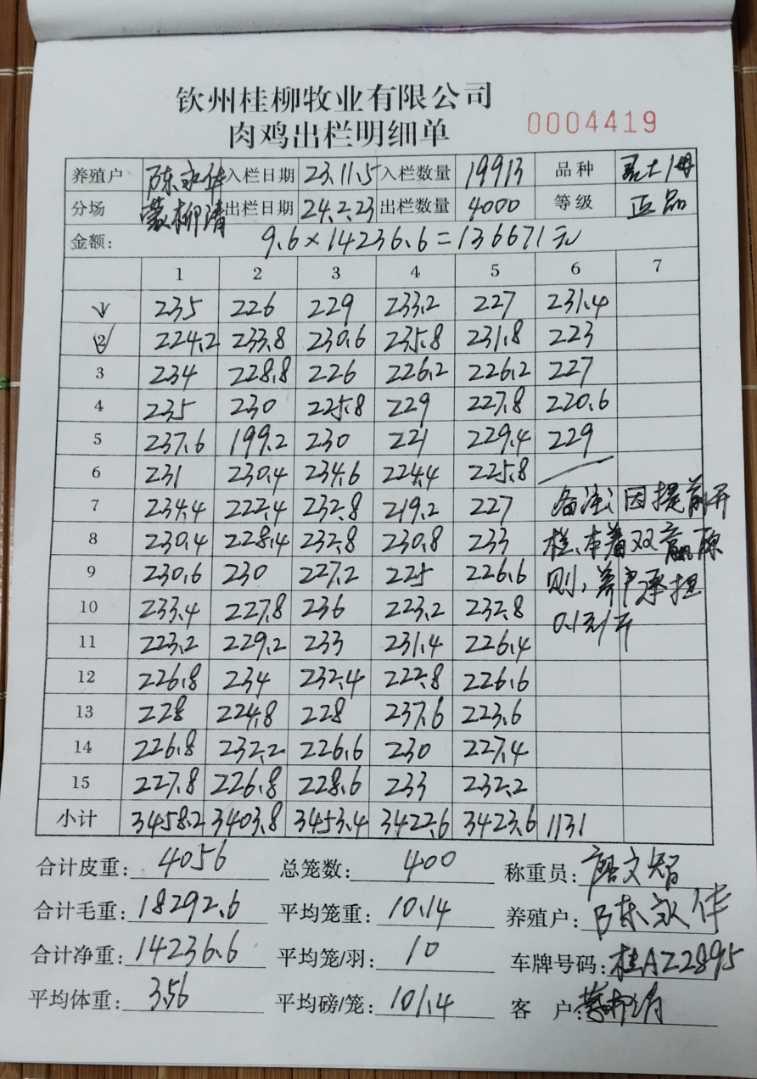 钦州桂柳牧业有限公司
肉鸡出栏明细单 0004419
养殖户 陈永华 入栏日期 23.11.5 入栏数量 19913 品种
分场 蒙柳清 出栏日期 24.2.23 出栏数量 4000 等级 正品
金额: 9.6×14236.6=136671元
1 2 3 4 5 6 7
235 226 229 233.2 227 231.4
2 224.2 233.8 230.6 235.8 231.8 223
3 234 228.8 226 226.2 226.2 227
4 235 230 225.8 229 227.8 220.6
5 237.6 199.2 230 221 229.4 229
6 231 230.4 234.6 224.4 225.8
7 234.4 222.4 232.8 219.2 227 备注:因提前开
8 230.4 228.4 232.8 230.8 233 栏、本着双赢原
9 230.6 230 227.2 225 226.6 则,养户承担
10 233.4 227.8 236 223.2 232.8 0.1元/斤
11 223.2 229.2 233 231.4 226.4
12 226.8 234 232.4 222.8 226.6
13 228 224.8 228 237.6 223.6
14 226.8 232.2 226.6 230 227.4
15 227.8 226.8 228.6 233 232.2
小计 3458.2 3403.8 3453.4 3422.6 3423.6 1131
合计皮重: 4056 总笼数: 400 称重员: 唐文智
合计毛重: 18292.6 平均笼重: 10.14 养殖户: 陈永华
合计净重: 14236.6 平均笼/羽: 10 车牌号码: 桂AZ2895
平均体重: 3.56 平均磅/笼: 101.4 客户: